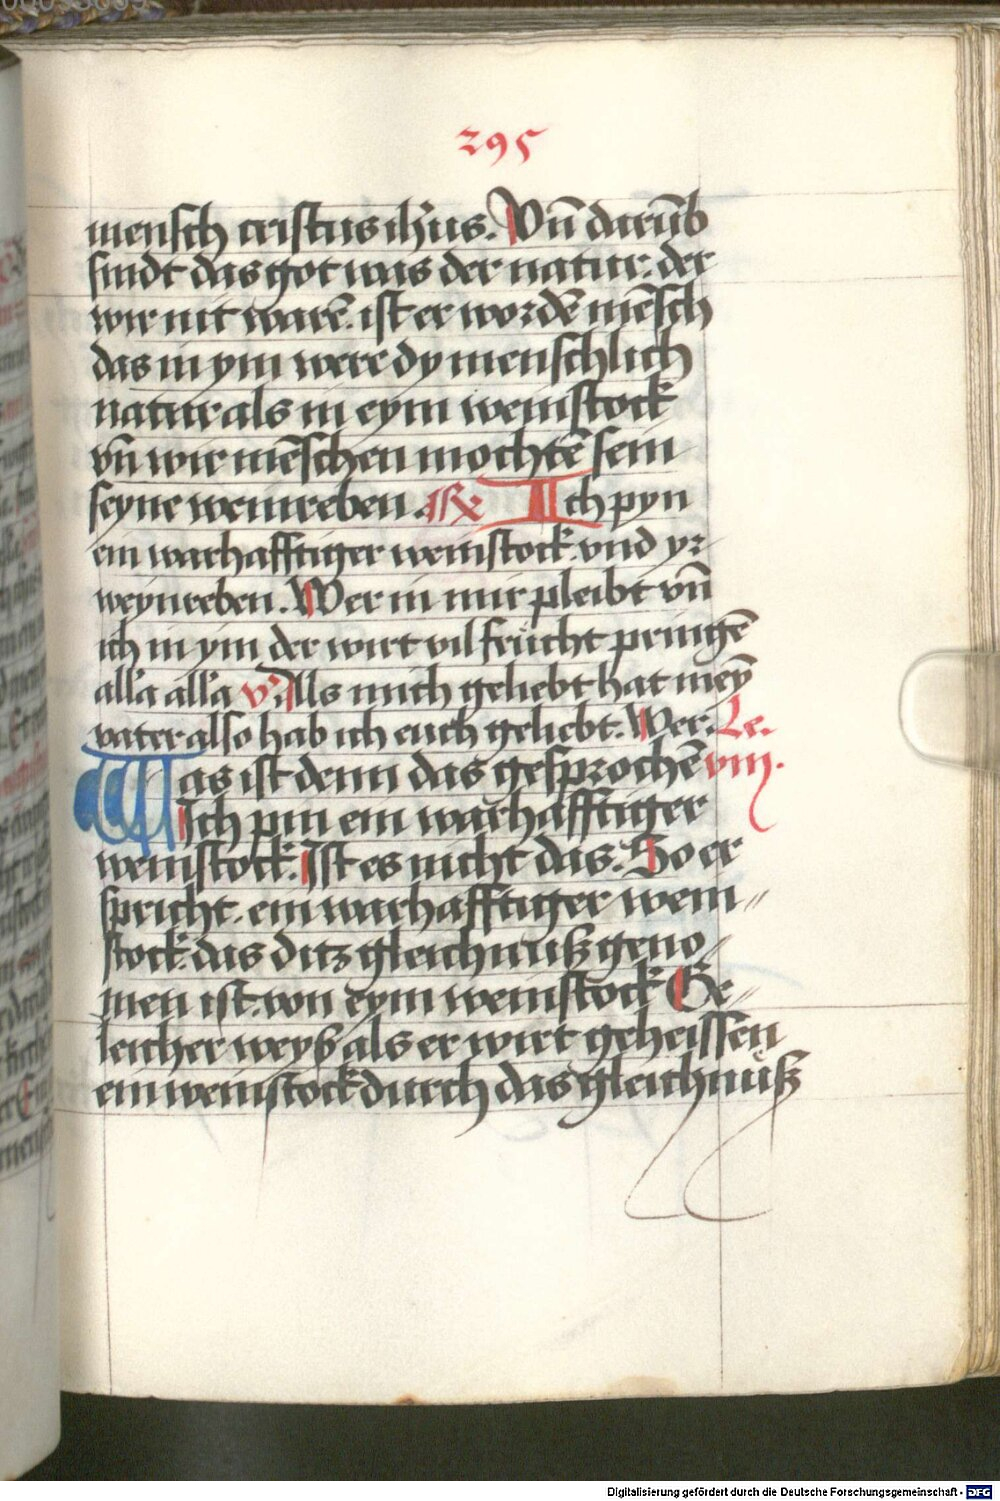 295
mensch cristus ih'us. Vn̄ darūb
sindt das got was der natur. der
wir nit warē. ist er wordē mēsch
das in ym were dy menschlich
natur als in eym weinstock
vn̄ wir mēschen mochtē sein
seyne weinreben. Rx Ich pyn
ein warhafftiger weinstock. vnd yr
weynreben. Wer in mir pleibt vn̄
ich in ym der wirt vil frücht pringē
all'a all'a v' Als mich geliebt hat meȳ
vater also hab ich euch geliebt. Wer. Le.
Was ist denn das gesprochē viij.
Ich pin ein warhafftiger
weinstock. Ist es nicht das. So er
spricht. ein warhafftiger wein//
stock. das ditz gleichnuß geno//
men ist. von eym weinstock Ge//
leicher weyß als er wirt geheissen
ein weinstock durch das gleichnüß
Digitalisierung gefördert durch die Deutsche Forschungsgemeinschaft - DFG